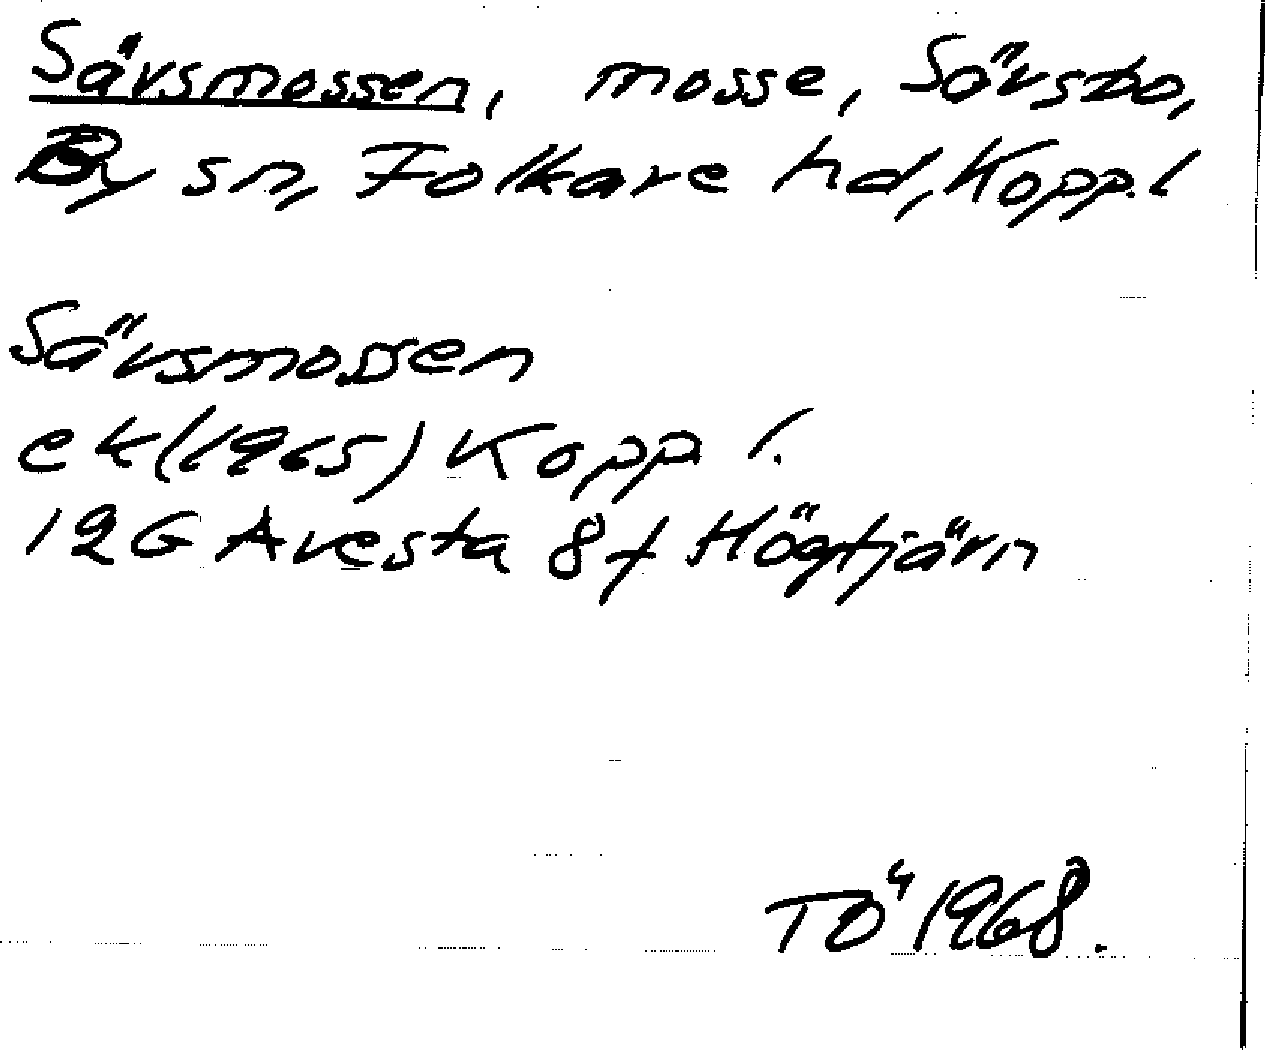 Särsmossen, mosse, Sörsbo,
By sn, Folkare hd, Kopp.l
Särsmossen
ek (1965) Kopp l.
12G Avesta 8f Högtjärn
TÖ 1968.